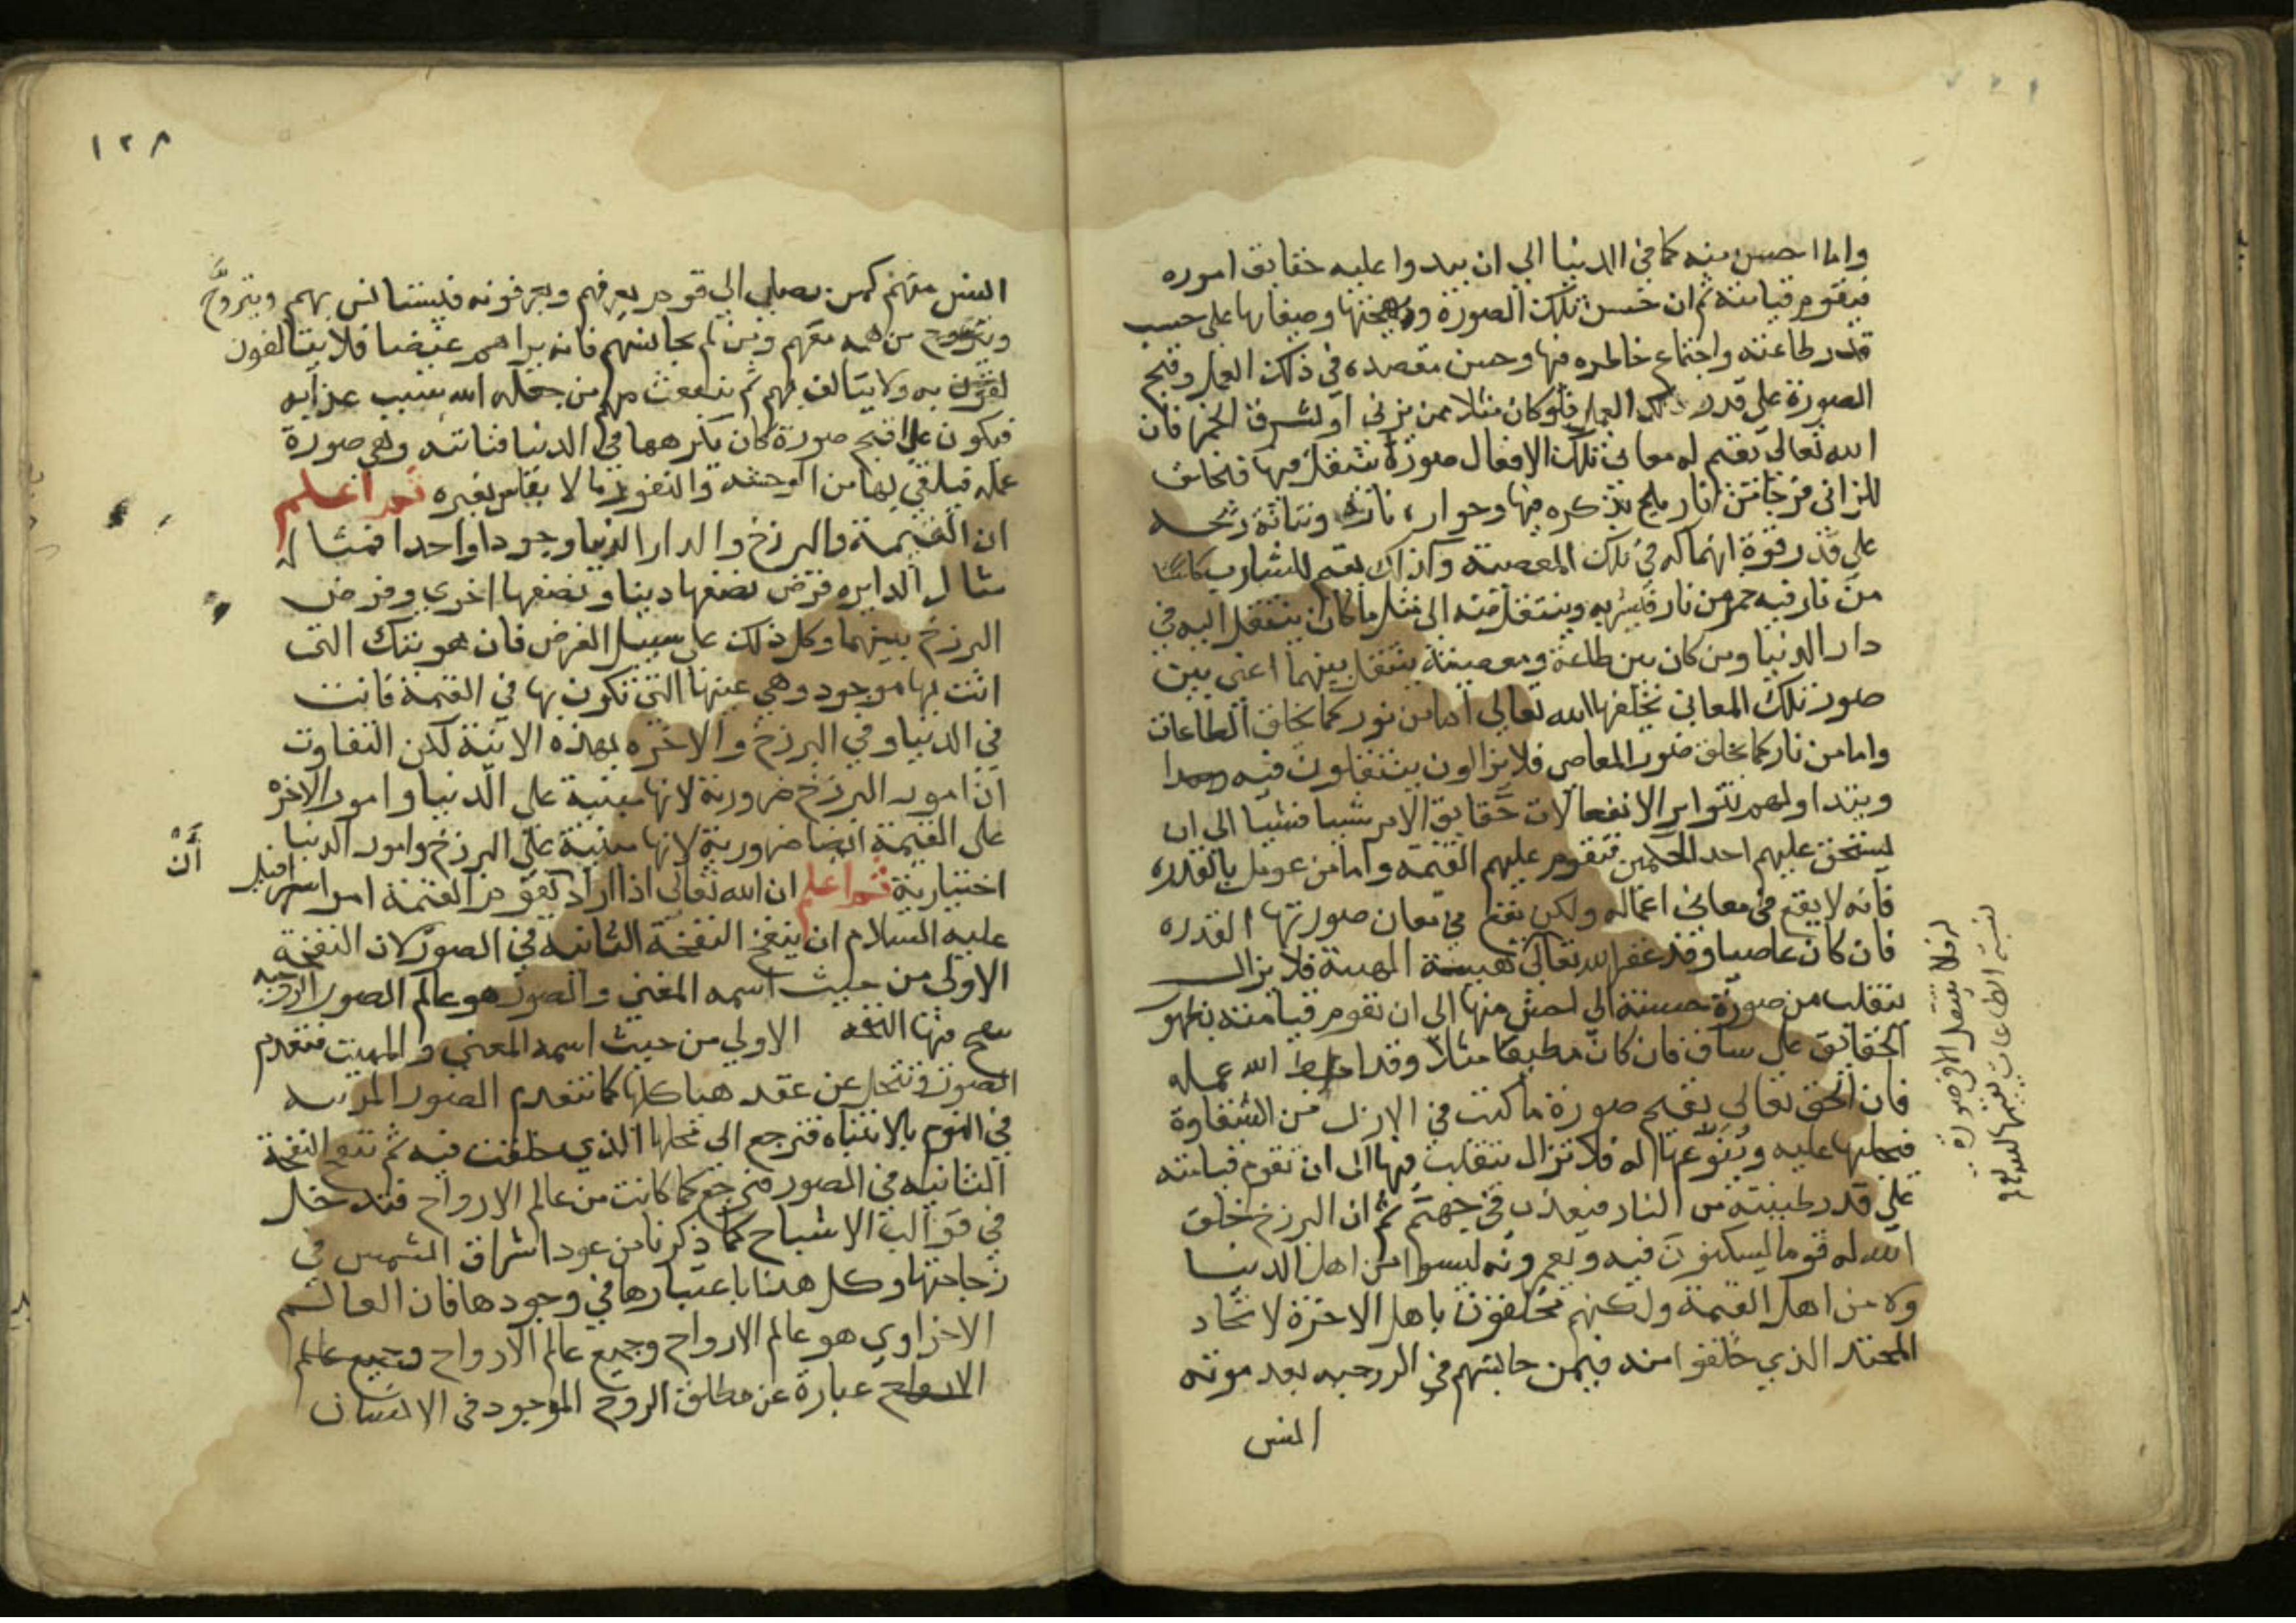 واما احسن منه كما في الدنيا الي ان يبدوا عليه حقايق اموره
فيقوم قيامته ثم ان حسن تلك الصورة وبهجتها وصفارها على حسب
قدر طاعته واجتماع خاطره فيها وحسن مقصده في ذلك العمل وقبح
الصورة على قدر ذلك العمل فلو كان مثلا ممن يزني او يشرب الخمر فان
الله تعالى يقيم له معانى تلك الافعال صورة يتنقل فيها فيخلق
للزانى فرجا من نار يلج بذكره فيها وحرارة ناره ونتانة ريحه
على قدر قوة انهماكه في تلك المعصية وكذلك يقيم للشارب كاسا
من نار فيه خمر من نار فيشربه وينتقل منه الى مثل ما كان ينتقل اليه في
دار الدنيا ومن كان بين طاعة ومعصية يتنقل بينهما اعنى بين
صور تلك المعانى يخلقها الله تعالى اما من نور كما يخلق الطاعات
واما من نار كما يخلق صور المعاصى فلا يزالون يتنقلون فيه
ويتداولهم بتواتر الانفعالات حقايق الامر شيا فشيا الى ان
يستحق عليهم احد الحكمين فتقوم عليهم القيمة واما من عومل بالقدره
فانه لا يقع في معانى اعماله ولكن يقع في معان صورتها القدره
فان كان عاصيا وقد غفر الله تعالى المهية فلا يزال
يتقلب من صورة حسنة الى احسن منها الى ان تقوم قيامته بظهور
الحقايق على ساق فان كان مطيعا مثلا وقد احبط الله عمله
فان الحق تعالى يقيم صورة ما كتب في الازل من الشقاوة
فيجليها عليه وينوعها له فلا تزال تتقلب فيها الى ان تقوم قيامته
على قدر طبيته من النار فيعذب في جهنم ثم ان البرزخ خلق
الله له قوما يسكنون فيه ويعمرونه ليسوا من اهل الدنيا
ولا من اهل القيمة ولكنهم ملحقون باهل الاخرة لاتحاد
المحتد الذي خلقوا منه فيمن جانسهم في الروحيه بعد موته
انس
نسبة الطاعات
فلا يتنقل الا في صورة
١٢٨
انس منهم كمن يصل الي قوم يعرفهم ويعرفونه فيستانس بهم ويتروح
من همه معهم ومن لم يجانسهم فانه يراهم عضبا فلا يتالفون
به ولا يتالف بهم ثم ينبعث منهم من جعله الله سبب عذابه
فيكون على اقبح صورة كان يكرهها في الدنيا فتاتيه وهي صورة
عمله فيلقي بها من الوحشة والنفور ما لا يقاس بغيره ثم اعلم
ان القيمة والبرزخ والدار الدنيا وجودا واحدا فمثاله
مثال الدايره فرض نصفها دينا ونصفها اخرى وفرض
البرزخ بينهما وكل ذلك على سبيل الفرض فان هويتك التى
انت بها موجود وهي عينها التى تكون بها في القيمة فانت
في الدنيا وفي البرزخ والاخره بهذه الانية لكن التفاوت
ان امور البرزخ ضرورية لانها مبنية على الدنيا وامور الاخره
على القيمة ايضا ضرورية لانها مبنية على البرزخ وامور الدنيا
اختيارية ثم اعلم ان الله تعالى اذا اراد تقوم القيمة امر اسرافيل
ان
عليه السلام ان ينفخ النفخة الثانيه في الصور لان النفخة
الاولى من حيث اسمه المفنى والصور هو عالم الصور الروحيه
الاولي من حيث اسمه المفنى والمميت فتنعدم
الصور وتنحل عن عقد هياكلها كما تنعدم الصور المرئيه
في النوم بالانتباه فترجع الى محلها الذي خلقت فيه ثم تقع النفخة
الثانيه في الصور فترجع كما كانت من عالم الارواح فتدخل
في قوالب الاشباح كما ذكرنا من عود اشراق الشمس في
زجاجتها وكل هذا باعتبارها في وجودها فان العالم
الاخراوي هو عالم الارواح وجميع عالم الارواح وجميع عالم
الارواح عبارة عن مطلق الروح الموجود في الانسان